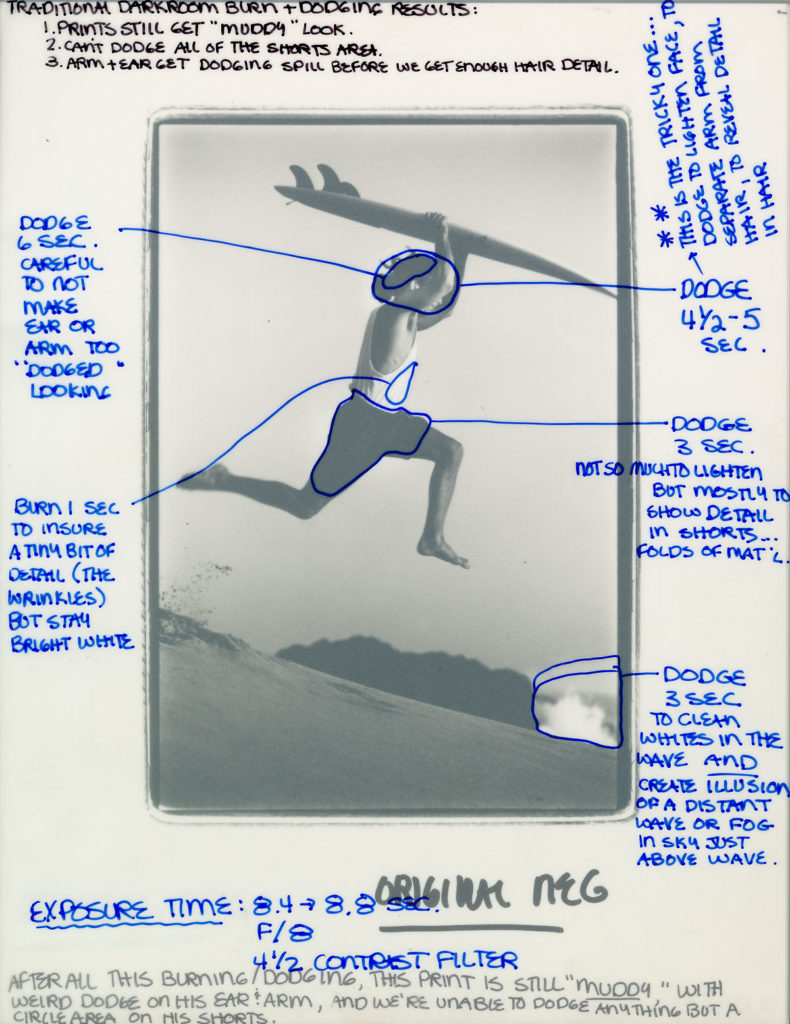 TRADITIONAL DARKROOM BURN + DODGING RESULTS:
1. PRINTS STILL GET "MUDDY" LOOK.
2. CAN'T DODGE ALL OF THE SHORTS AREA.
3. ARM + EAR GET DODGING SPILL BEFORE WE GET ENOUGH HAIR DETAIL.
** THIS IS THE TRICKY ONE...
DODGE TO LIGHTEN FACE, TO
SEPARATE ARM FROM
HAIR, TO REVEAL DETAIL
IN HAIR
DODGE
6 SEC.
CAREFUL
TO NOT
MAKE
EAR OR
ARM TOO
"DODGED"
LOOKING
DODGE
4 1/2 - 5
SEC.
DODGE
3 SEC.
NOT SO MUCH TO LIGHTEN
BUT MOSTLY TO
SHOW DETAIL
IN SHORTS...
FOLDS OF MAT'L.
BURN 1 SEC
TO INSURE
A TINY BIT OF
DETAIL (THE
WRINKLES)
BUT STAY
BRIGHT WHITE
DODGE
3 SEC
TO CLEAN
WHITES IN THE
WAVE AND
CREATE ILLUSION
OF A DISTANT
WAVE OR FOG
IN SKY JUST
ABOVE WAVE.
ORIGINAL NEG
EXPOSURE TIME: 8.4 → 8.8 SEC.
F/8
4 1/2 CONTRAST FILTER
AFTER ALL THIS BURNING/DODGING, THIS PRINT IS STILL "MUDDY" WITH
WEIRD DODGE ON HIS EAR & ARM, AND WE'RE UNABLE TO DODGE ANYTHING BUT A
CIRCLE AREA ON HIS SHORTS.